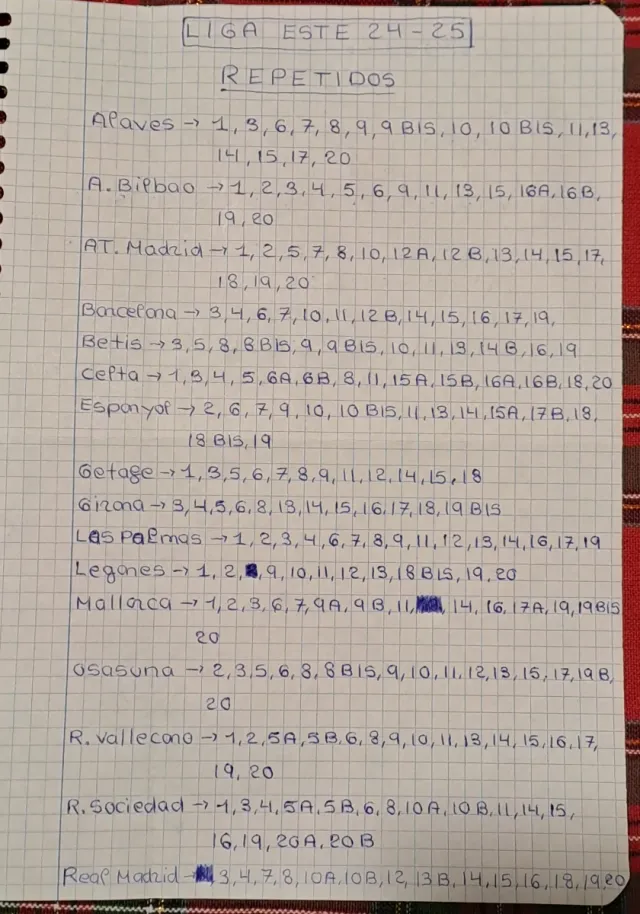 LIGA ESTE 24-25
REPETIDOS
Alaves → 1, 3, 6, 7, 8, 9, 9 BIS, 10, 10 BIS, 11, 13,
14, 15, 17, 20
A. Bilbao → 1, 2, 3, 4, 5, 6, 9, 11, 13, 15, 16A, 16B,
19, 20
AT. Madrid → 1, 2, 5, 7, 8, 10, 12A, 12B, 13, 14, 15, 17,
18, 19, 20
Barcelona → 3, 4, 6, 7, 10, 11, 12 B, 14, 15, 16, 17, 19,
Betis → 3, 5, 8, 8 BIS, 9, 9 BIS, 10, 11, 13, 14 B, 16, 19
Celta → 1, 3, 4, 5, 6A, 6B, 8, 11, 15A, 15B, 16A, 16B, 18, 20
Espanyol → 2, 6, 7, 9, 10, 10 BIS, 11, 13, 14, 15A, 17B, 18,
18 BIS, 19
Getafe → 1, 3, 5, 6, 7, 8, 9, 11, 12, 14, 15, 18
Girona → 3, 4, 5, 6, 8, 13, 14, 15, 16, 17, 18, 19 BIS
Las Palmas → 1, 2, 3, 4, 6, 7, 8, 9, 11, 12, 13, 14, 16, 17, 19
Leganes → 1, 2, 9, 10, 11, 12, 13, 18 BIS, 19, 20
Mallorca → 1, 2, 3, 6, 7, 9A, 9B, 11, 14, 16, 17A, 19, 19BIS
20
Osasuna → 2, 3, 5, 6, 8, 8 BIS, 9, 10, 11, 12, 13, 15, 17, 19B,
20
R. Vallecano → 1, 2, 5A, 5B, 6, 8, 9, 10, 11, 13, 14, 15, 16, 17,
19, 20
R. Sociedad → 1, 3, 4, 5A, 5B, 6, 8, 10A, 10B, 11, 14, 15,
16, 19, 20A, 20B
Real Madrid → 3, 4, 7, 8, 10A, 10B, 12, 13B, 14, 15, 16, 18, 19, 20